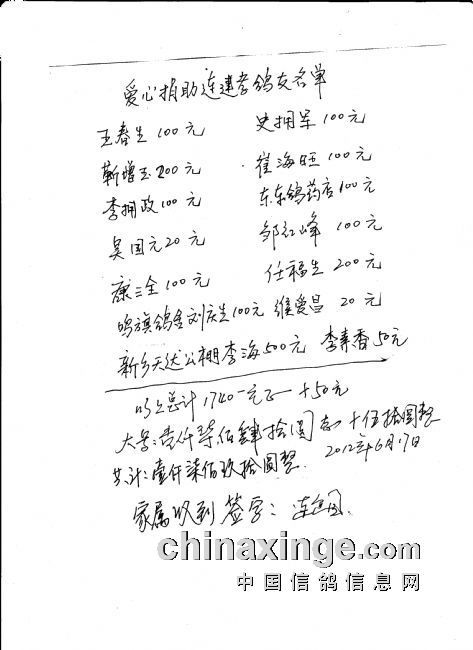 爱心捐助连建孝鸽友名单
王春生100元 史拥军100元
靳增玉200元 崔海旺100元
李拥政100元 东东鸽药店100元
吴国元20元 邹红峰100元
康三全100元 任福生200元
鸣旗鸽舍刘庆生100元 维爱昌20元
新乡天达公棚李海500元 李素香50元
以上总计1740元正 +50元
大写:壹仟柒佰肆拾圆 +伍拾圆整
共计:壹仟柒佰玖拾圆整. 2012年6月17日
家属收到签字:连
chinaxinge.com
中国信鸽信息网